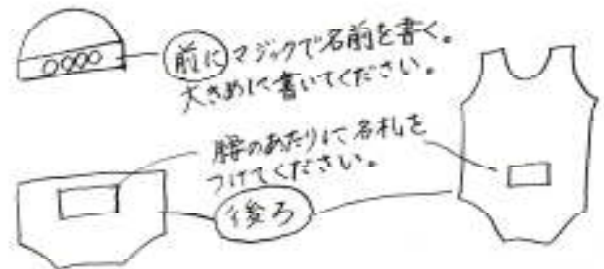 ○○○○
前にマジックで名前を書く。
大きめに書いてください。
腰のあたりに名札を
つけてください。
後ろ